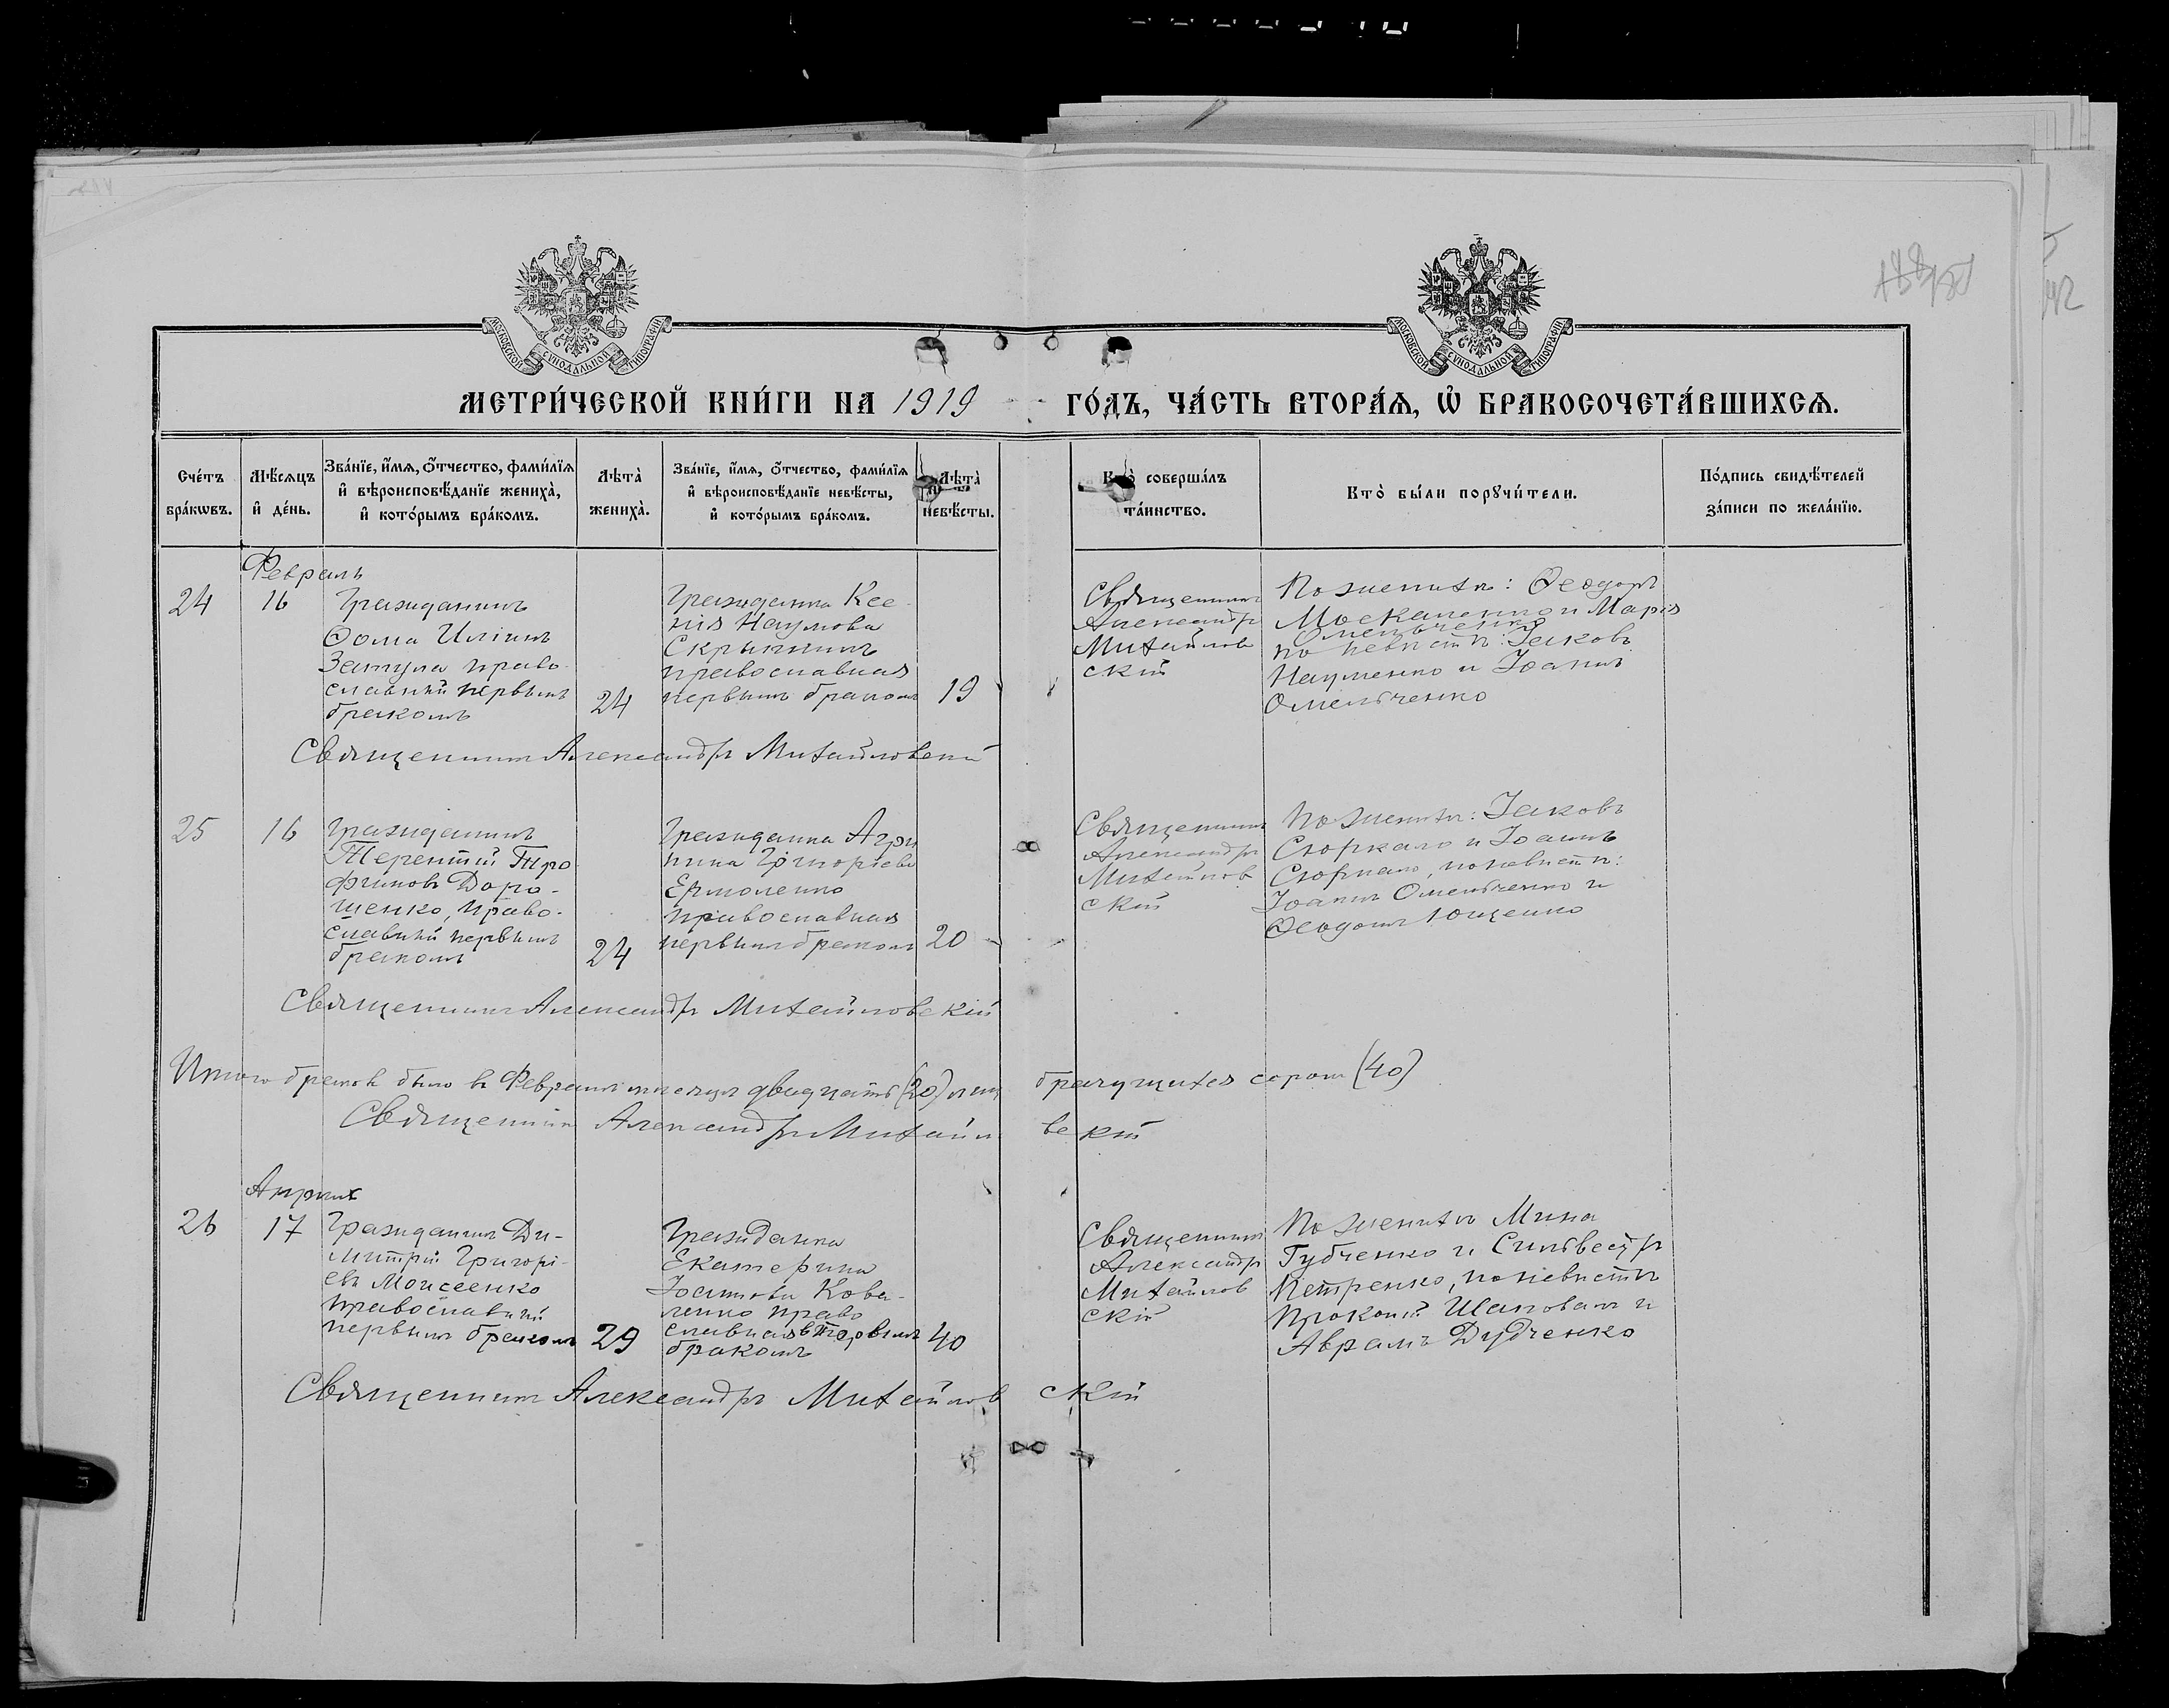 МОСКОВСКОЙ СУНОДАЛЬНОЙ ТИПОГРАФІИ
МОСКОВСКОЙ СУНОДАЛЬНОЙ ТИПОГРАФІИ
МЕТРИ́ЧЕСКОЙ КНИ́ГИ НА 1919 ГО́ДЪ, ЧА́СТЬ ВТОРА́Я, Ѡ҆ БРАКОСОЧЕТА́ВШИХСЯ.
Сче́тъ
бра́кѡвъ.
Мѣ́сѧцъ
и҆ де́нь.
Зва́нїе, и҆́мя, ѻ҆́тчество, фами́лїя
и҆ вѣроисповѣ́данїе жениха̀,
и҆ кото́рымъ бра́комъ.
Лѣта̀
жениха̀.
Зва́нїе, и҆́мя, ѻ҆́тчество, фами́лїя
и҆ вѣроисповѣ́данїе невѣ́сты,
и҆ кото́рымъ бра́комъ.
Лѣта̀
невѣ́сты.
Кто̀ соверша́лъ
та́инство.
Кто̀ бы́ли порꙋчи́тели.
По́дпись свидѣ́телей
за́писи по жела́нїю.
Февраль
24
16
Гражданинъ
Ѳома Иліинъ
Затула право-
славный первымъ
бракомъ
24
Гражданка Ксе-
нія Наумова
Скрыпникъ
православная
первымъ бракомъ
19
Священникъ
Александръ
Михайлов
скій
По женихѣ: Ѳеодоръ
Москаленко и Марія
Омельченко
по невѣстѣ: Іаковъ
Науменко и Іоаннъ
Омельченко
Священникъ Александръ Михайловскій
25
16
Гражданинъ
Терентій Тро
фимовъ Доро-
шенко, право-
славный первымъ
бракомъ
24
Гражданка Агри
пина Григоріева
Ермоленко
православная
первымъ бракомъ
20
Священникъ
Александръ
Михайлов
скій
По женихѣ: Іаковъ
и Іоаннъ
по невѣстѣ:
Іоаннъ Омельченко и
Ющенко
Священникъ Александръ Михайловскій
Итого браковъ было въ Февралѣ мѣсяцѣ двадцать (20) лицъ брачущихся сорокъ (40)
Священникъ Александръ Михайловскій
Апрѣль
26
17
Гражданинъ Ди-
митрій Григорі-
евъ Моисеенко
православный
первымъ бракомъ
29
Гражданка
Екатерина
Іоаннова Кова-
ленко право
славная вторымъ
бракомъ
40
Священникъ
Александръ
Михайлов
скій
По женихѣ Мина
Губченко и Сильвестръ
Петренко, по невѣстѣ
Прокопій Шаповалъ и
Аврамъ Дудченко
Священникъ Александръ Михайловскій